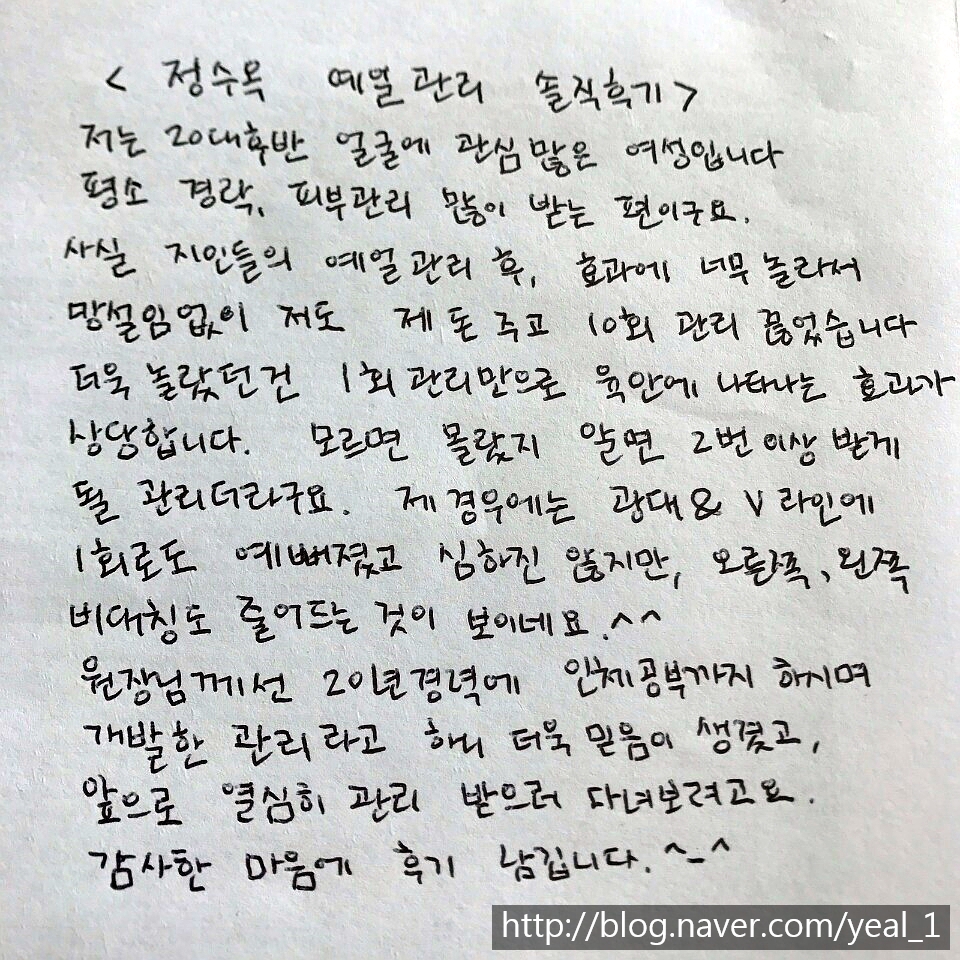 < 정수옥 예얼관리 솔직후기 >
저는 20대후반 얼굴에 관심많은 여성입니다
평소 경락, 피부관리 많이 받는 편이구요.
사실 지인들의 예얼관리 후, 효과에 너무 놀라서
망설임없이 저도 제 돈 주고 10회 관리 끊었습니다
더욱 놀랐던건 1회 관리만으로 육안에 나타나는 효과가
상당합니다. 모르면 몰랐지 알면 2번이상 받게
될 관리더라구요. 제 경우에는 광대 & V라인에
1회로도 예뻐졌고 심하진 않지만, 오른쪽, 왼쪽
비대칭도 줄어드는 것이 보이네요.^^
원장님께선 21년경력에 인체공부까지 하시며
개발한 관리라고 하니 더욱 믿음이 생겼고,
앞으로 열심히 관리 받으러 다녀보려고요.
감사한 마음에 후기 남깁니다.^-^
http://blog.naver.com/yeal_1